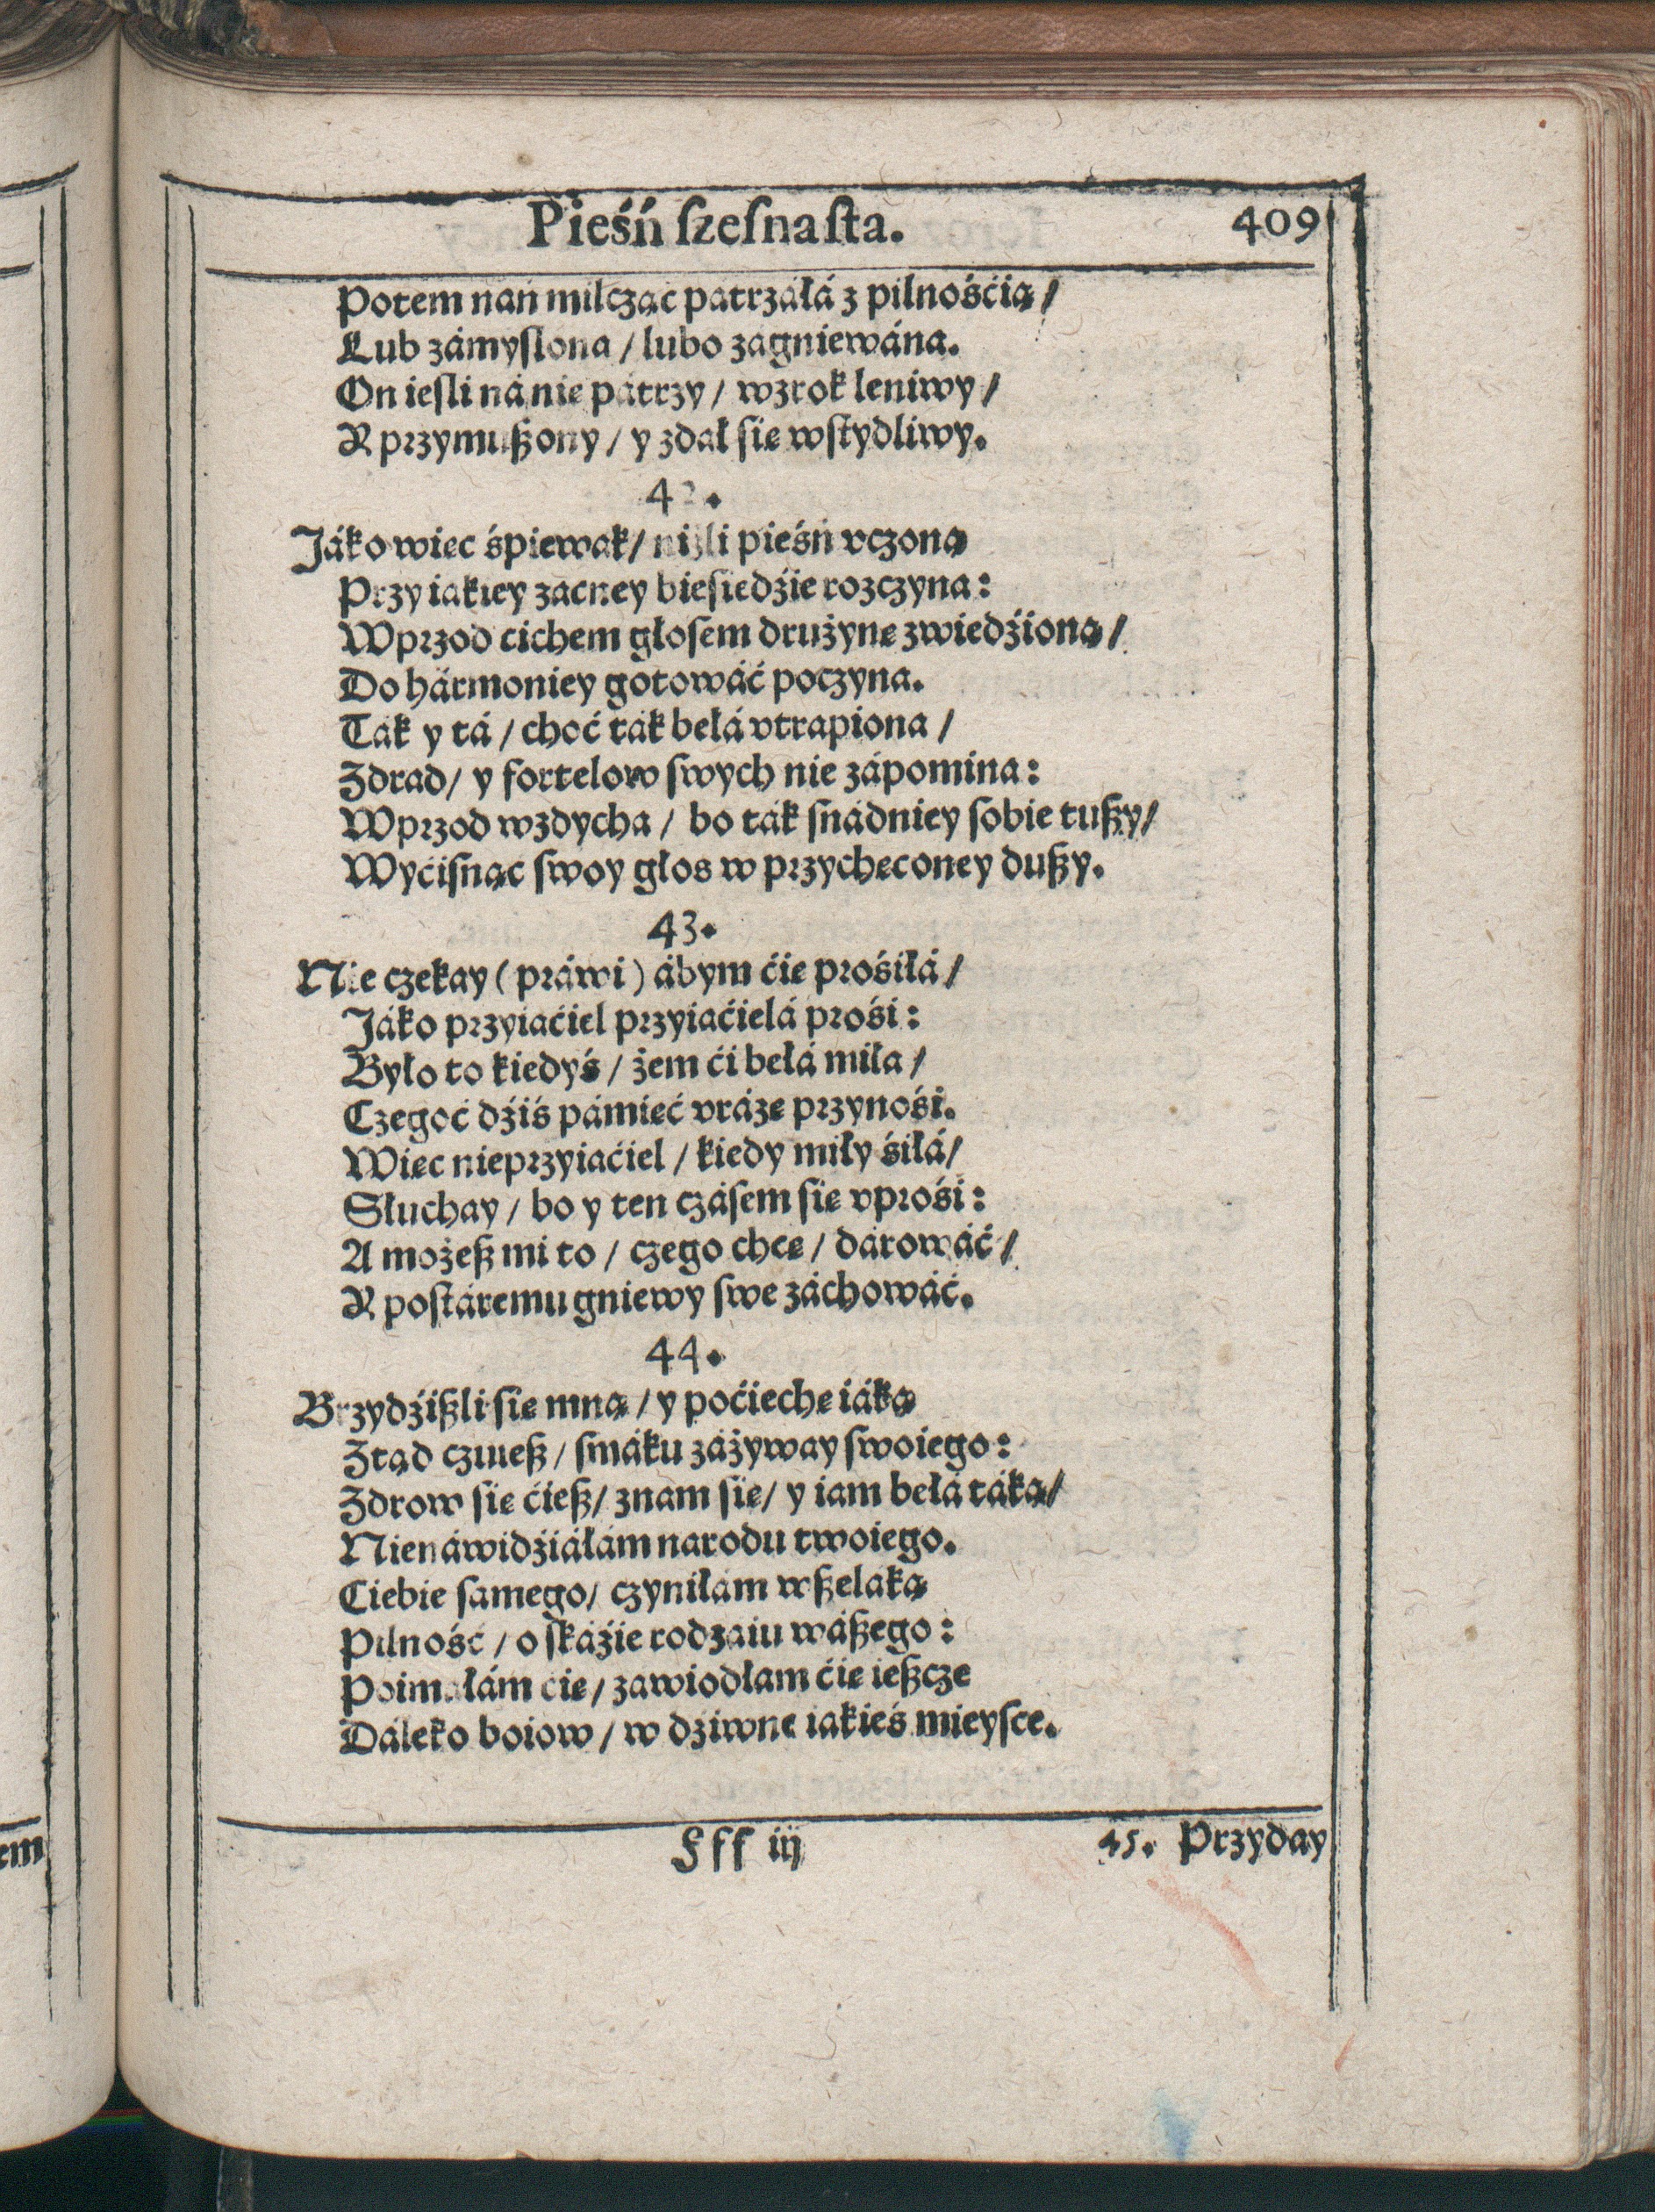 Pieśń ſzeſnaſta. 409
Potem nań milcząc patrzáłá z pilnośćią/
Lub zámyſlona / lubo zagniewána.
On ieſli ná nię pátrzy / wzrok leniwy /
Y przymuſzony / y zdał ſię wſtydliwy.
42.
Jáko więc śpiewak / niżli pieśń vczoną
Przy iakiey zacney bieſiedźie rozczyna:
Wprzod cichem głoſem drużynę zwiedźioną /
Do hármoniey gotowáć poczyna.
Ták y tá / choć ták bełá vtrapiona /
Zdrad / y fortelow ſwych nie zápomina:
Wprzod wzdycha / bo ták ſnádniey ſobie tuſzy /
Wyćiſnąc ſwoy głos w przychęconey duſzy.
43.
Nie czekay (práwi) ábym ćię prośiłá /
Jáko przyiaćiel przyiaćielá prośi:
Było to kiedyś / żem ći bełá miła /
Czegoć dźiś pámięć vrázę przynośi.
Więc nieprzyiaćiel / kiedy miły śiłá /
Słuchay / bo y ten czáſem ſię vprośi:
A możeſz mi to / czego chcę / dárowáć /
Y poſtáremu gniewy ſwe záchowáć.
44.
Brzydźiſzli ſię mną / y poćiechę iáką
Ztąd czuieſz / ſmáku záżyway ſwoiego:
Zdrow ſię ćieſz / znam ſię / y iam bełá táką /
Nienáwidźiáłám narodu twoiego.
Ciebie ſamego / czyniłám wſzelaką
Pilność / o ſkáźie rodzaiu wáſzego:
Poimáłám cię / zawiodłam ćię ieſzcze
Dáleko boiow / w dźiwne iakieś mieyſce.
Fff iij 45. Przyday
em